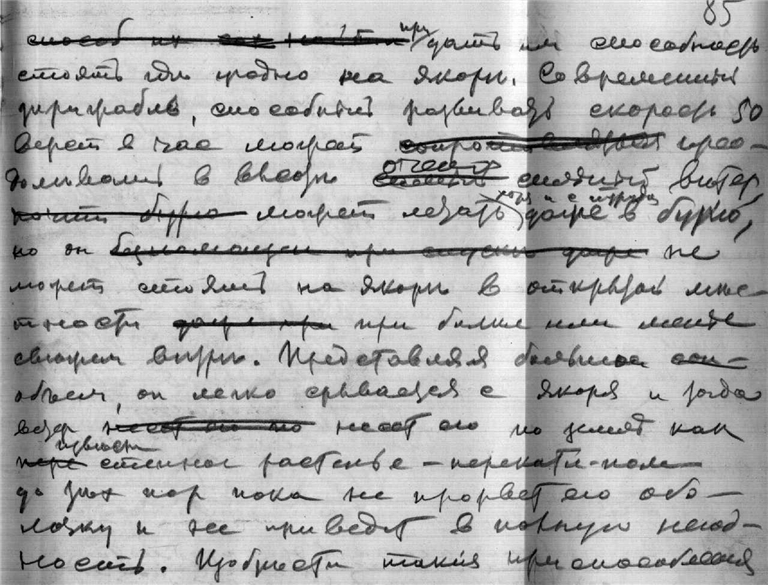 85
способ их при дать им способность
стоять где угодно на якоре. Современный
дирижабль, способный развивать скорость 50
верст в час может прео-
долевать в воздухе очень сильный ветер
может летать даже в бурю,
но он не
может стоять на якоре в открытой мес-
тности при более или менее
свежем ветре. Представляя большой
объем, он легко срывается с якоря и тогда
ветер несет его по земле как
известное степное растенье – перекати-поле
до тех пор пока не прорвет его обо-
лочку и не приведет в полную негод-
ность. Изобрести такия приспособления